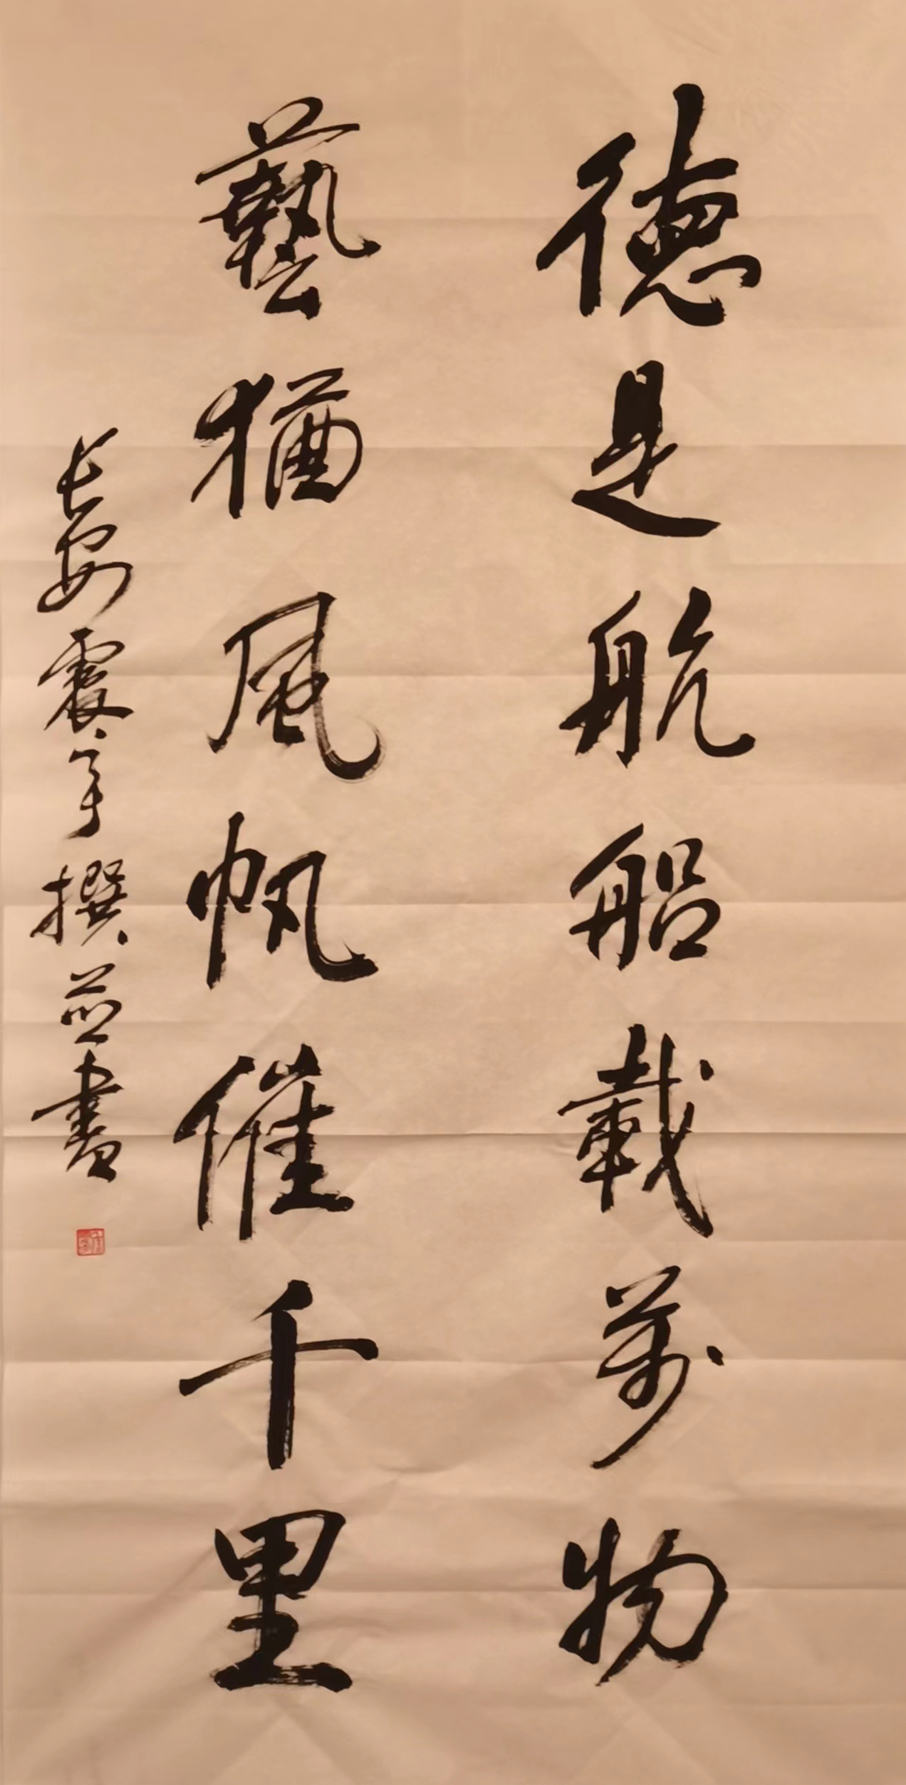 德是航船載萬物
藝猶風帆催千里
長安震宇撰並書